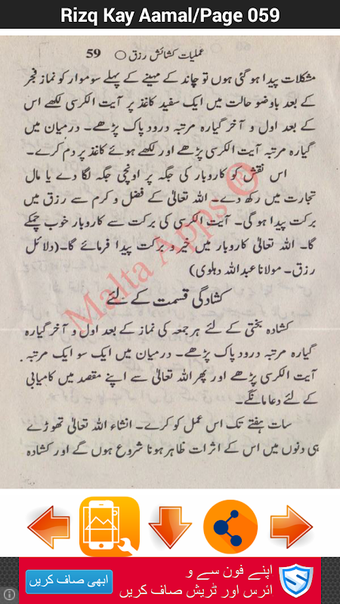 Rizq Kay Aamal/Page 059
عملیات کشائش رزق ○ 59
مشکلات پیدا ہو گئی ہوں تو چاند کے مہینے کے پہلے سوموار کو نماز فجر
کے بعد باوضو حالت میں ایک سفید کاغذ پر آیت الکرسی لکھے اس
کے بعد اول و آخر گیارہ مرتبہ درود پاک پڑھے۔ درمیان میں
گیارہ مرتبہ آیت الکرسی پڑھے اور لکھے ہوئے کاغذ پر دم کرے۔
اس نقش کو کاروبار کی جگہ پر اونچی جگہ لگا دے یا مال
تجارت میں رکھ دے۔ اللہ تعالیٰ کے فضل و کرم سے رزق میں
برکت پیدا ہو گی۔ آیت الکرسی کی برکت سے کاروبار خوب چمکے
گا۔ اللہ تعالیٰ کاروبار میں خیر و برکت پیدا فرمائے گا۔ (دلائل
رزق۔ مولانا عبداللہ دہلوی)
کشادگی قسمت کے لئے
کشادہ بختی کے لئے ہر جمعہ کی نماز کے بعد اول و آخر گیارہ
گیارہ مرتبہ درود پاک پڑھے۔ درمیان میں ایک سو ایک مرتبہ
آیت الکرسی پڑھے اور پھر اللہ تعالیٰ سے اپنے مقصد میں کامیابی
کے لئے دعا مانگے۔
سات ہفتے تک اس عمل کو کرے۔ انشاء اللہ تعالیٰ تھوڑے
ہی دنوں میں اس کے اثرات ظاہر ہونا شروع ہوں گے اور کشادہ
Malta Apps ®
اپنے فون سے و
ائرس اور ٹریش صاف کریں
ابھی صاف کریں